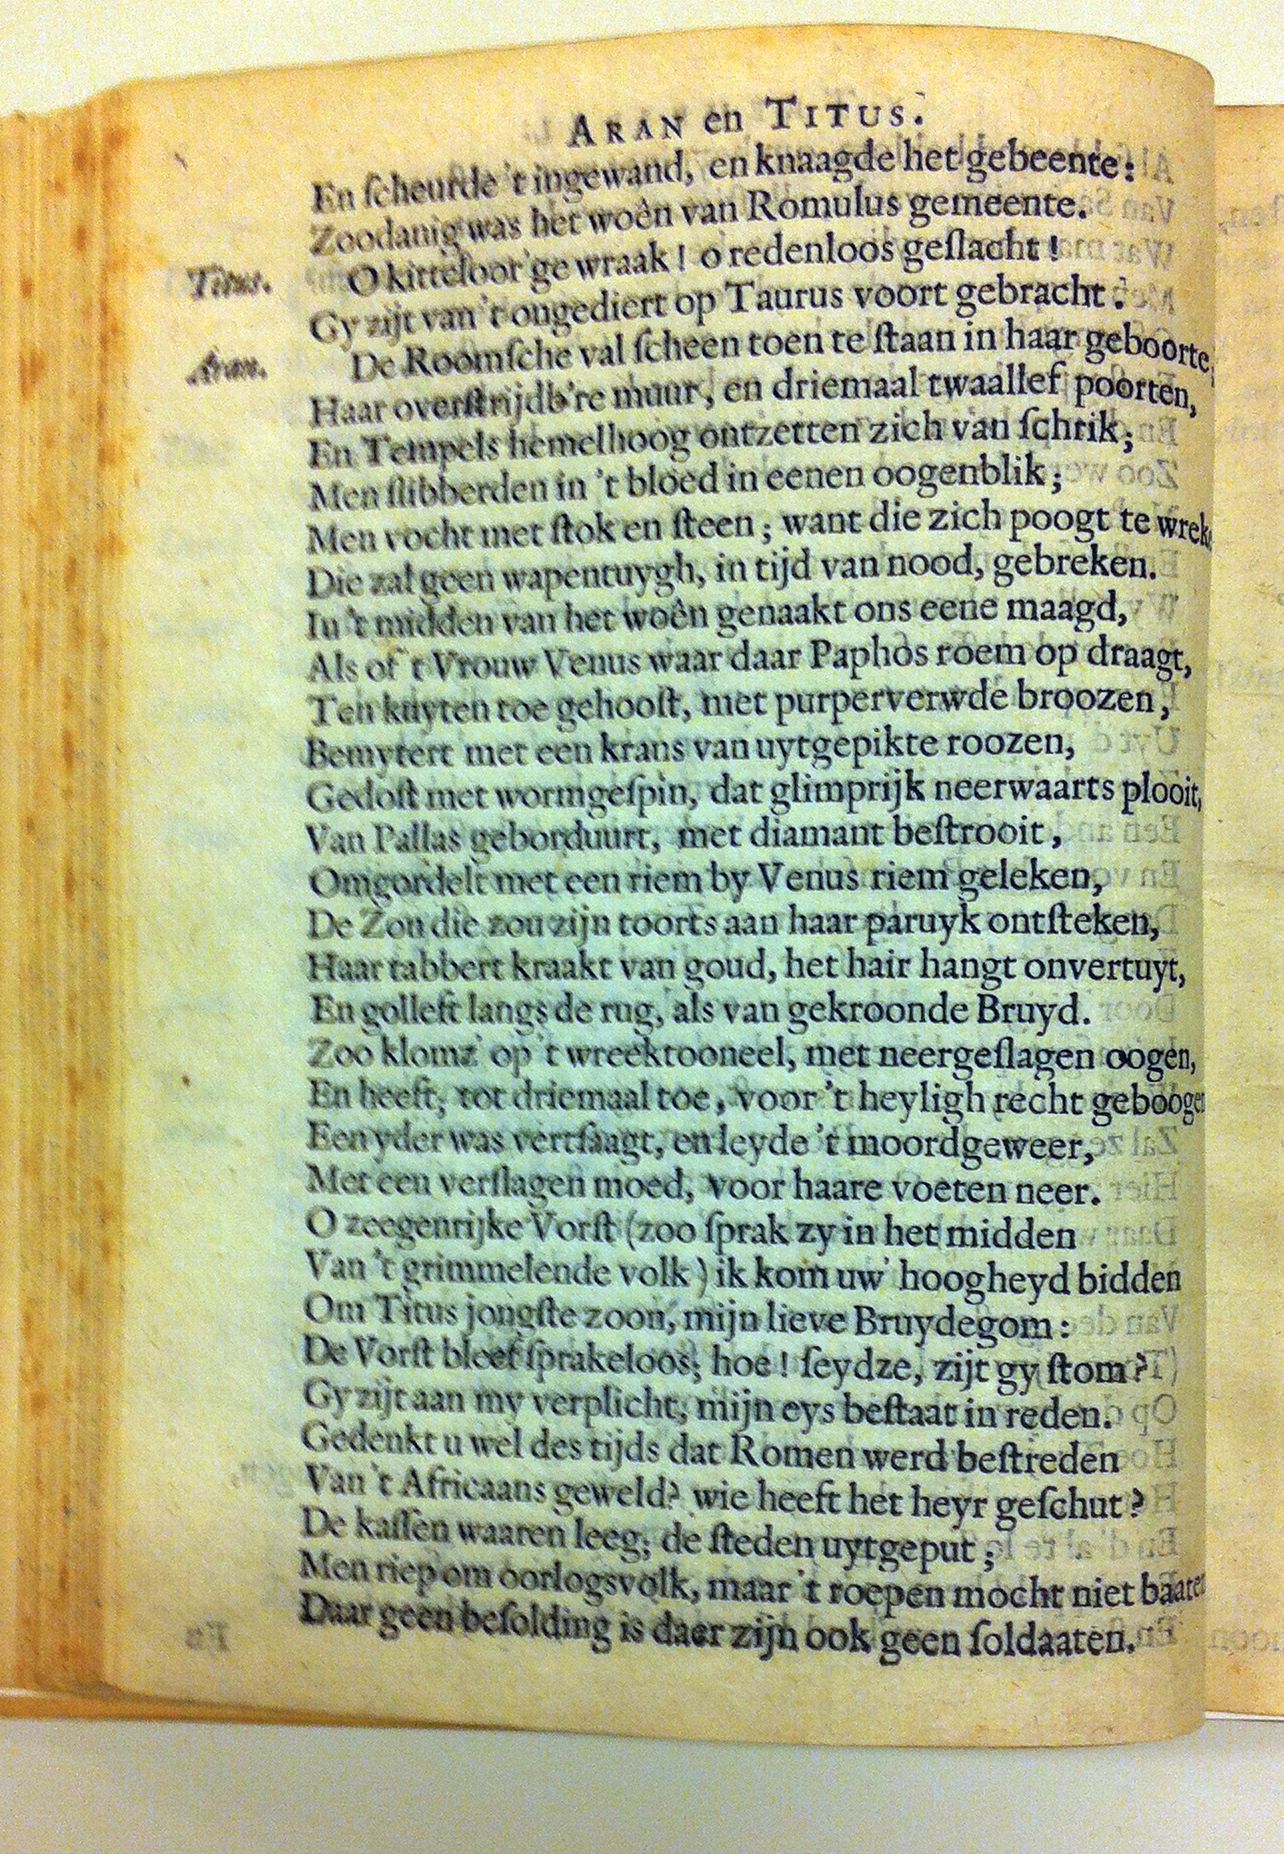 ARAN en TITUS.
En ſcheurde 't ingewand, en knaagde het gebeente:
Zoodanig was het woên van Romulus gemeente.
Titus. O kitteloor'ge wraak! o redenloos geſlacht!
Gy zijt van 't ongediert op Taurus voort gebracht.
Aran. De Roomſche val ſcheen toen te ſtaan in haar geboorte;
Haar overſtrijdb're muur, en driemaal twaallef poorten,
En Tempels hemelhoog ontzetten zich van ſchrik;
Men ſlibberden in 't bloed in eenen oogenblik;
Men vocht met ſtok en ſteen; want die zich poogt te wreke
Die zal geen wapentuygh, in tijd van nood, gebreken.
In 't midden van het woên genaakt ons eene maagd,
Als of 't Vrouw Venus waar daar Paphos roem op draagt,
Ten kuyten toe gehooſt, met purperverwde broozen,
Bemytert met een krans van uytgepikte roozen,
Gedoſt met wormgeſpin, dat glimprijk neerwaarts plooit,
Van Pallas geborduurt, met diamant beſtrooit,
Omgordelt met een riem by Venus riem geleken,
De Zon die zou zijn toorts aan haar paruyk ontſteken,
Haar tabbert kraakt van goud, het hair hangt onvertuyt,
En golleft langs de rug, als van gekroonde Bruyd.
Zoo klomz' op 't wreektooneel, met neergeſlagen oogen,
En heeft, tot driemaal toe, voor 't heyligh recht geboogen
Een yder was vertſaagt, en leyde 't moordgeweer,
Met een verſlagen moed, voor haare voeten neer.
O zeegenrijke Vorſt (zoo ſprak zy in het midden
Van 't grimmelende volk) ik kom uw' hoogheyd bidden
Om Titus jongſte zoon, mijn lieve Bruydegom:
De Vorſt bleef ſprakeloos; hoe! ſeydze, zijt gy ſtom?
Gy zijt aan my verplicht, mijn eys beſtaat in reden.
Gedenkt u wel des tijds dat Romen werd beſtreden
Van 't Africaans geweld? wie heeft het heyr geſchut?
De kaſſen waaren leeg; de ſteden uytgeput;
Men riep om oorlogsvolk, maar 't roepen mocht niet baaten
Daar geen beſolding is daer zijn ook geen ſoldaaten.